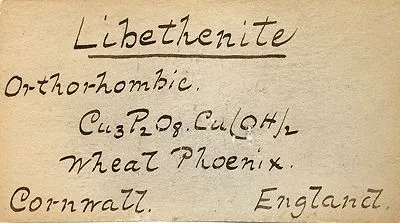 Libethenite
Orthorhombic.
Cu3P2O8.Cu(OH)2
Wheal Phoenix.
Cornwall. England.